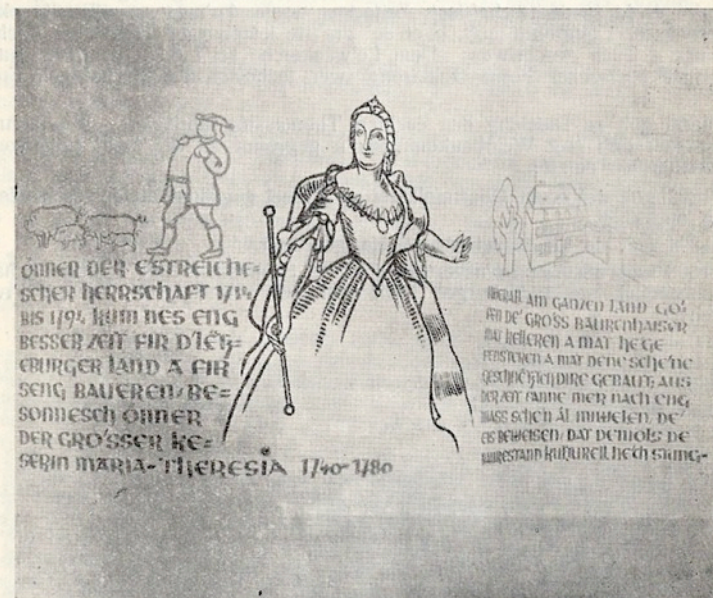 ÖNNER DER ESTREICHE=
SCHER HERRSCHAFT 1714
BIS 1794 KUM NES ENG
BESSER ZEIT FIR D'LËTZ=
EBURGER LAND A FIR
SENG BAUEREN/BE=
SONNESCH ÖNNER
DER GRO'SSER KE=
SERIN MARIA-THERESIA 1740-1780
IWERALL AM GANZEN LAND GO'=
FEN DE' GRO'SS BAURENHAISER
MAT KELLEREN A MAT HE'GE
FENSTEREN A MAT DENE SCHE'NE
GESCHNËTZTEN DIRE GEBAUT; AUS
DER ZEIT FANNE MER NACH ENG
MASS SCHEN ÂL MIWELEN, DE'
ES BEWEISEN/DAT DEMOLS DE
BAUERESTAND KULTURELL HE'CH STUNG-